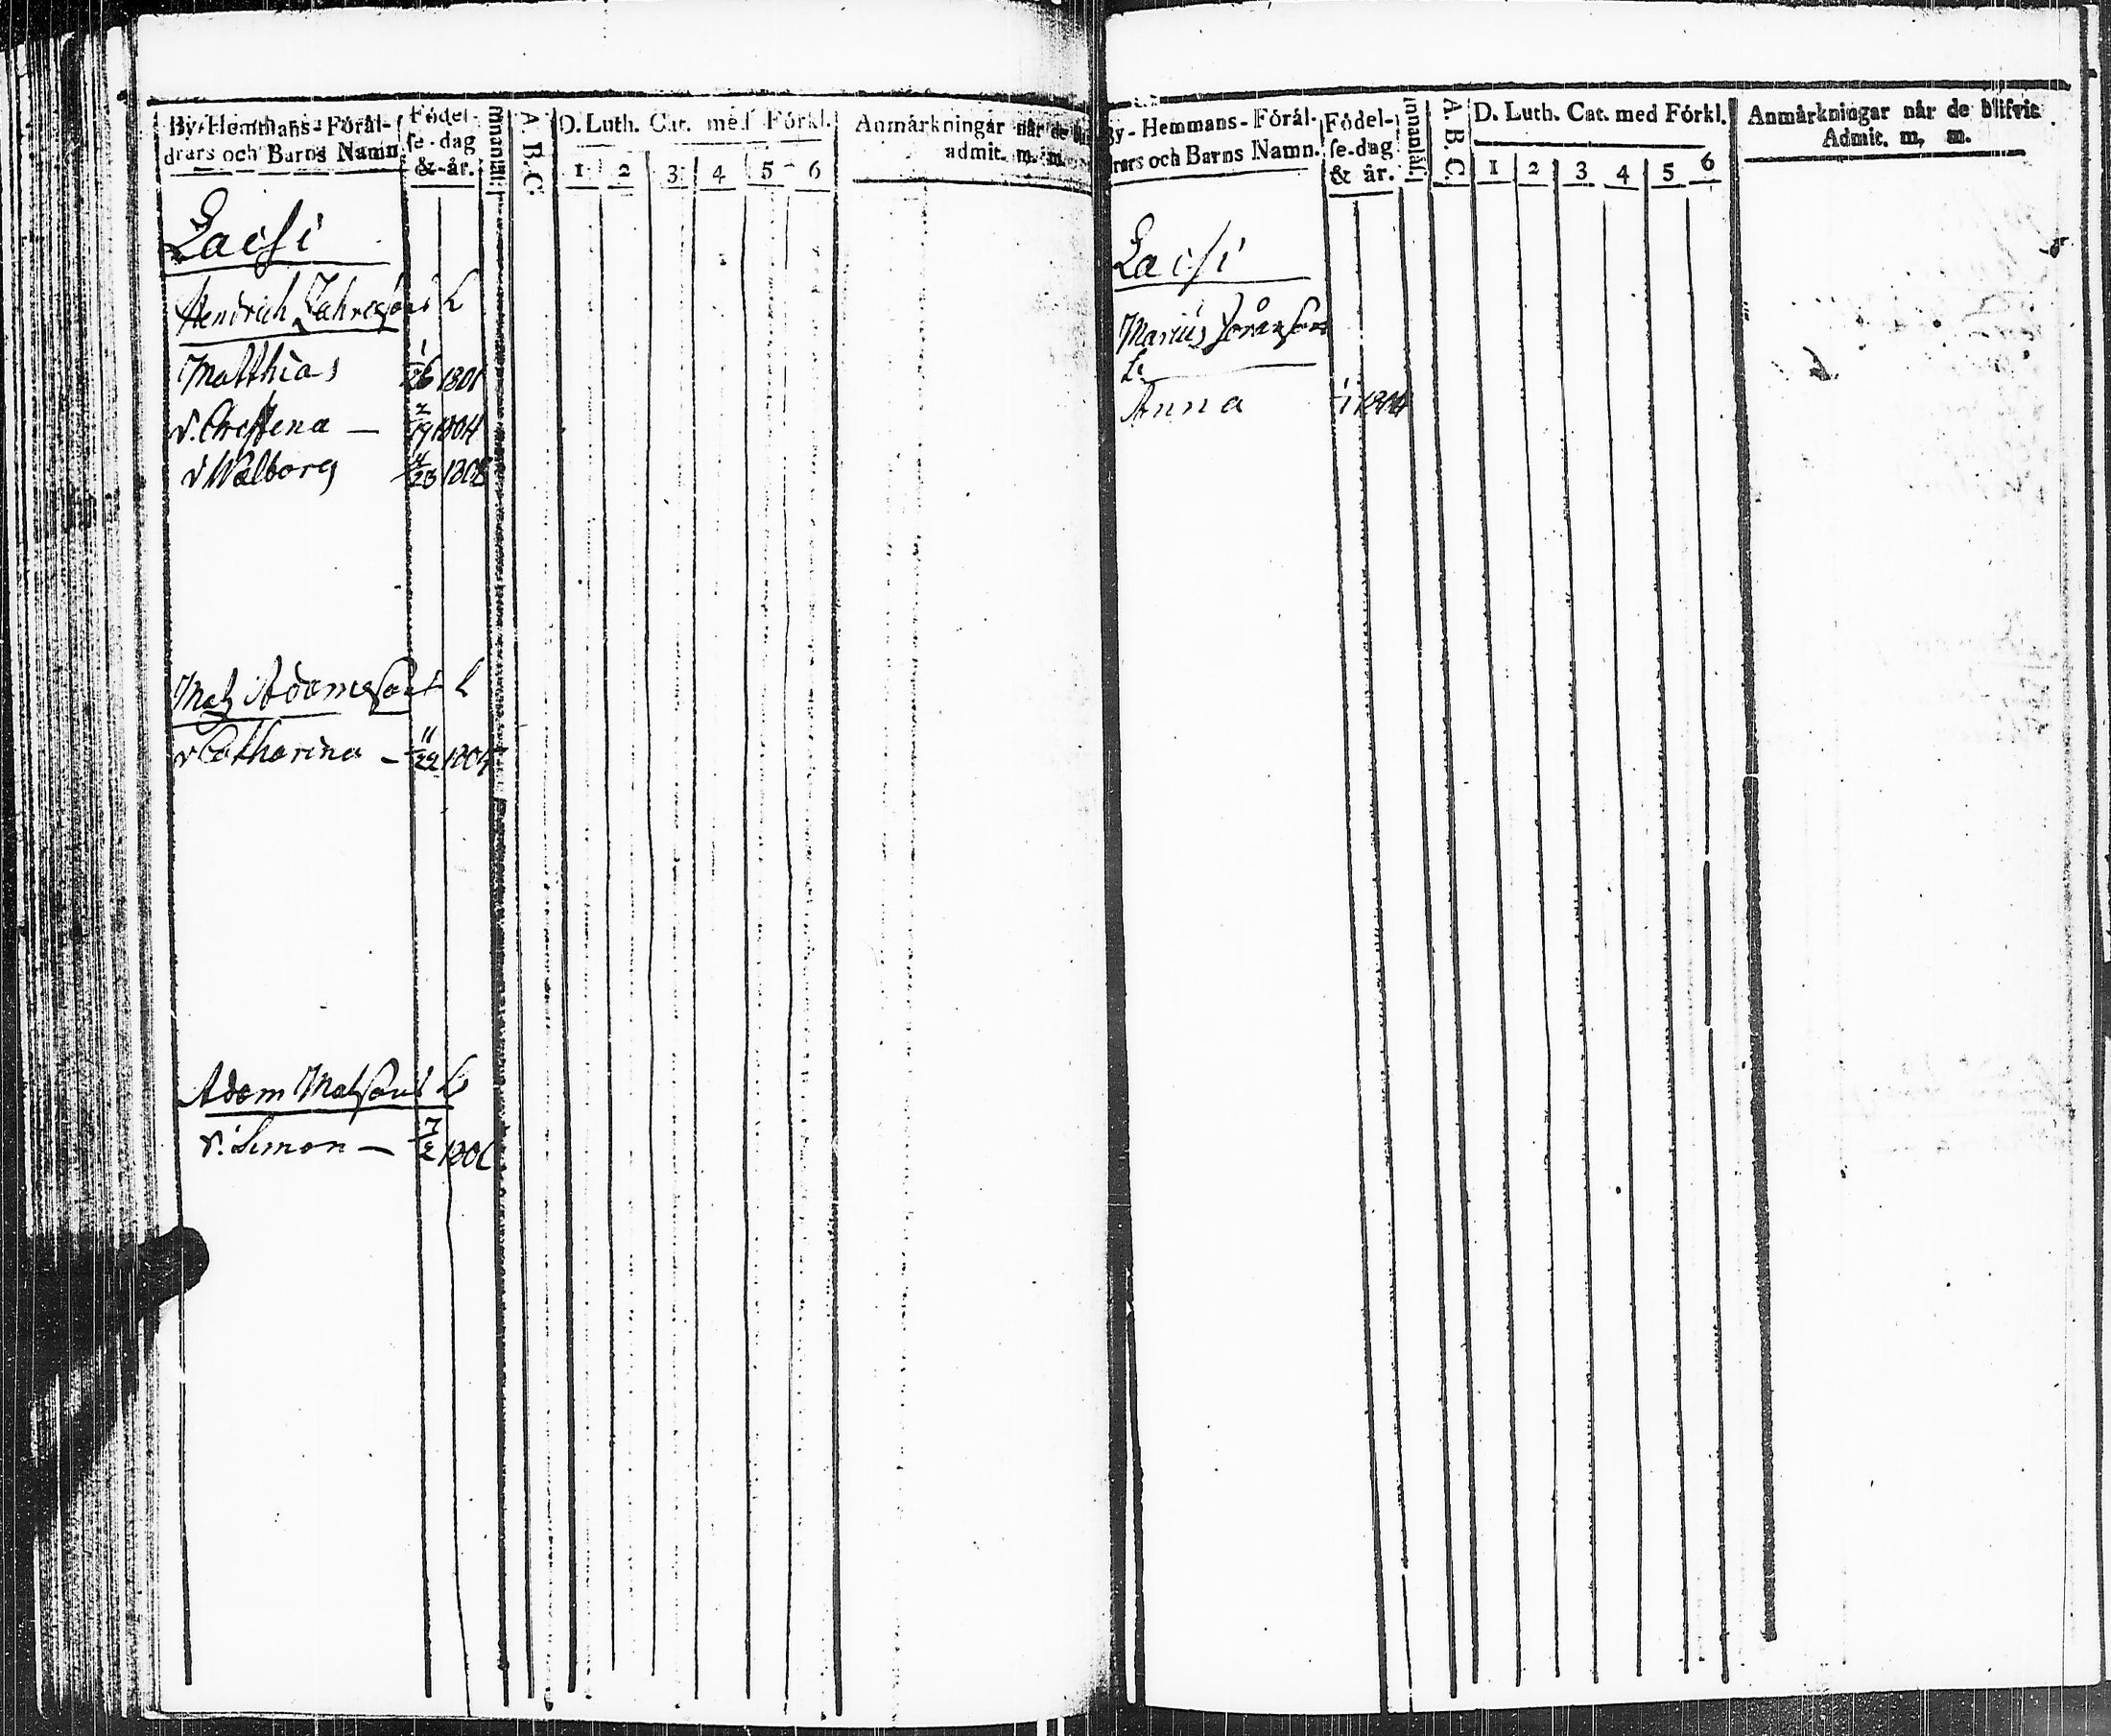 By-Hemmans-Föräl-
drars och Barns Namn
Födel-
se-dag
& år.
Innanläs.
A. B. C.
D. Luth. Cat. med Förkl.
1 2 3 4 5 6
Anmärkningar när de
admit. m. m.
Laisi
Hendrich
Matthias 1/26 1801
v. Christena — 2/19 1804
v Walborg 4/23 1808
Matz Adamsson L
v Catharina — 11/22 1804
Adam Matsson
v. Simon — 7/2 1806
By-Hemmans-Föräl-
drars och Barns Namn.
Födel-
se-dag
& år.
Innanläs.
A. B. C.
D. Luth. Cat. med Förkl.
1 2 3 4 5 6
Anmärkningar när de blifvit
Admit. m. m.
Laisi
Marius
Anna